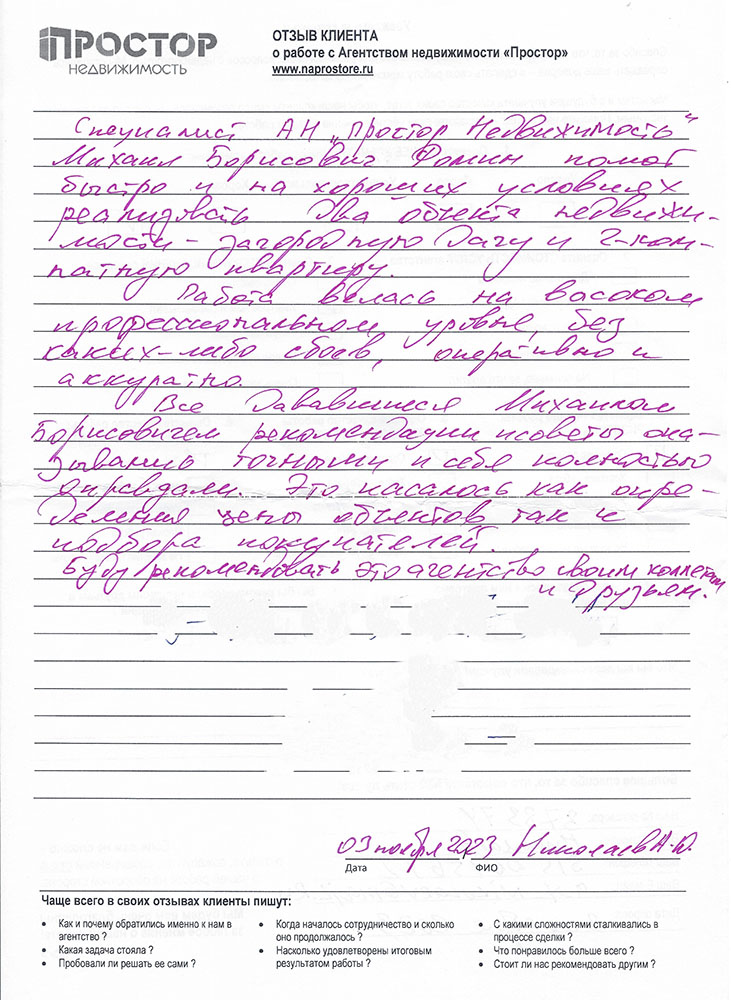 ПРОСТОР
НЕДВИЖИМОСТЬ
ОТЗЫВ КЛИЕНТА
о работе с Агентством недвижимости «Простор»
www.naprostore.ru
Специалист АН „Простор Недвижимость“
Михаил Борисович Фомин помог
быстро и на хороших условиях
реализовать два объекта недвижи-
мости - загородную дачу и 2-ком-
натную квартиру.
Работа велась на васоком
профессиональном уровне, без
каких-либо сбоев, оперативно и
аккуратно.
Все дававшиеся Михаилом
Борисовичем рекомендации и советы ока-
зывались точными и себя полностью
оправдали. Это касалось как опре-
деления цены объектов так и
подбора покупателей.
Буду рекомендовать это агентство своим коллегам
и друзьям.
03 ноября 2023 Николаев А.Ю.
Дата ФИО
Чаще всего в своих отзывах клиенты пишут:
• Как и почему обратились именно к нам в
агентство ?
• Какая задача стояла ?
• Пробовали ли решать ее сами ?
• Когда началось сотрудничество и сколько
оно продолжалось ?
• Насколько удовлетворены итоговым
результатом работы ?
• С какими сложностями сталкивались в
процессе сделки ?
• Что понравилось больше всего ?
• Стоит ли нас рекомендовать другим ?